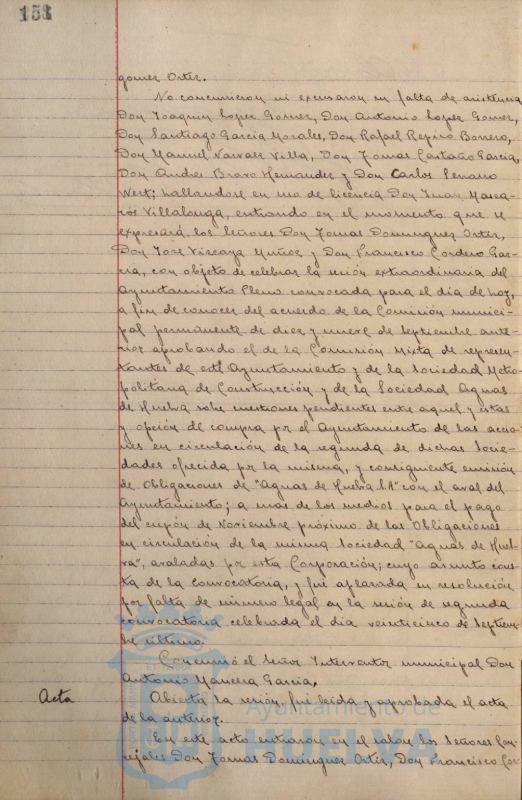 151
gomez Ortiz.
No concurrieron ni excusaron su falta de asistencia
Don Joaquin Lopez Gomez, Don Antonio Lopez Gomez,
Don Santiago Garcia Morales, Don Rafael Repiso Borrero,
Don Manuel Narvaez Villa, Don Tomas Castaño Garcia,
Don Andres Bravo Hernandez y Don Carlos Serrano
West; hallandose en uso de licencia Don Juan Masca-
rós Villalonga, entrando en el momento que se
expresará, los Señores Don Tomas Dominguez Ortiz,
Don Jose Vizcaya Muñoz y Don Francisco Cordero Gar-
cia, con objeto de celebrar la sesión extraordinaria del
Ayuntamiento Pleno convocada para el día de hoy,
a fin de conocer del acuerdo de la Comisión munici-
pal permanente de diez y nueve de Septiembre ante-
rior aprobando el de la Comisión Mixta de represen-
tantes de este Ayuntamiento y de la Sociedad Metro-
politana de Construcción y de la Sociedad Aguas
de Huelva sobre cuestiones pendientes entre aquel y estas
y opción de compra por el Ayuntamiento de las accio-
nes en circulación de la segunda de dichas Socie-
dades ofrecida por la misma, y consiguiente emisión
de Obligaciones de "Aguas de Huelva S.A" con el aval del
Ayuntamiento; a mas de los medios para el pago
del cupón de Noviembre próximo de las Obligaciones
en circulación de la misma Sociedad "Aguas de Huel-
va", avaladas por esta Corporación; cuyo asunto cons-
ta de la convocatoria, y fué aplazada su resolución
por falta de número legal en la sesión de segunda
convocatoria celebrada el día veinticinco de Septiem-
bre último.
Concurrió el Señor Interventor municipal Don
Antonio Manzera Garcia.
Acta Abierta la sesión, fué leida y aprobada el acta
de la anterior.
En este acto entraron en el salon los Señores Con-
cejales Don Tomas Dominguez Ortiz, Don Francisco Cor-
Ayuntamiento de
HUELVA